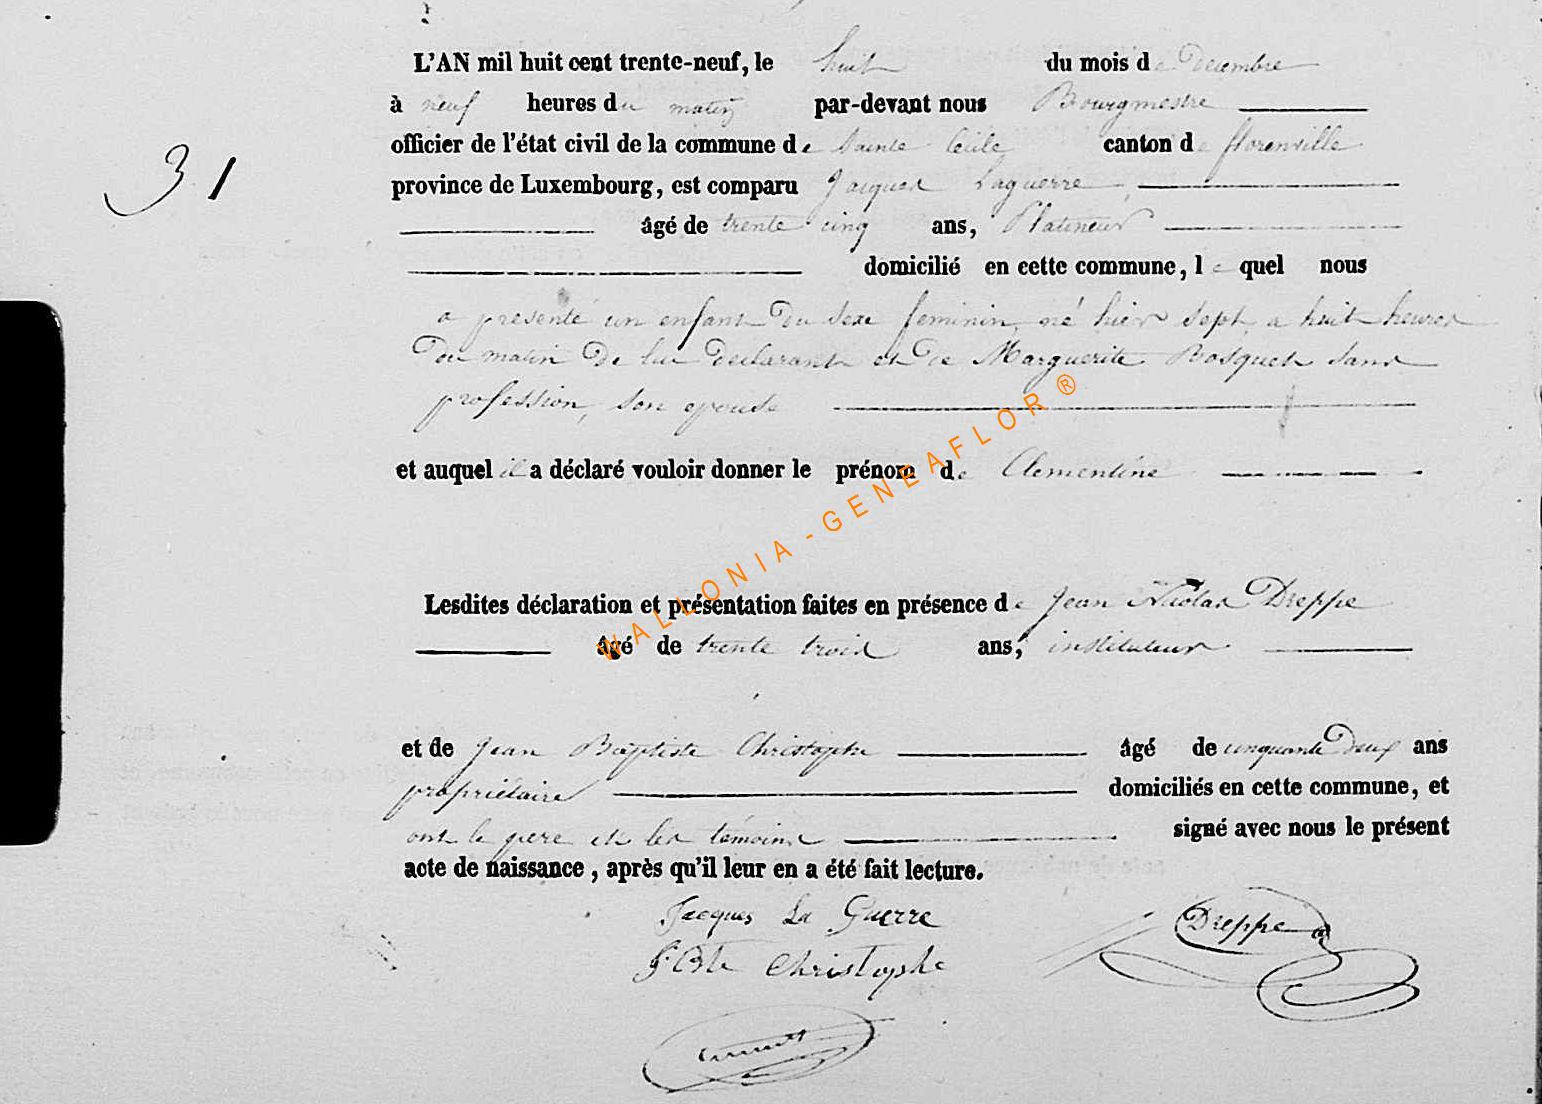 L'AN mil huit cent trente-neuf, le huit du mois de Decembre
à neuf heures du matin par-devant nous Bourgmestre
officier de l'état civil de la commune de Sainte Cécile canton de florenville
31
province de Luxembourg, est comparu Jacques Laguerre,
âgé de trente cinq ans, Platineur
domicilié en cette commune, le quel nous
a présenté un enfant du sexe feminin, né hier sept, a huit heures
du matin de lui declarant et de Marguerite Bosquet sans
profession, son epouse
et auquel il a déclaré vouloir donner le prénom de Clementine
WALLONIA - GENEAFLOR ®
Lesdites déclaration et présentation faites en présence de Jean Nicolas Dreppe
âgé de trente trois ans, instituteur
et de Jean Baptiste Christophe âgé de cinquante deux ans
propriétaire domiciliés en cette commune, et
ont le pere et les témoins signé avec nous le présent
acte de naissance, après qu'il leur en a été fait lecture.
Jacques La Guerre
Dreppe
J. Bte Christophe